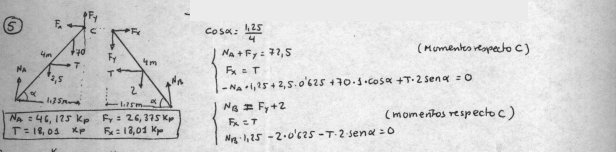 5
Fx Fy C Fx
70 Fy
4m T T 4m
NA 2,5 2 NB
α α
1,25m 1,25m
NA = 46,125 Kp Fy = 26,375 Kp
T = 18,01 Kp Fx = 18,01 Kp
cosα = 1,25/4
NA + Fy = 72,5 (Momentos respecto C)
Fx = T
-NA·1,25 + 2,5·0'625 + 70·1·cosα + T·2senα = 0
NB = Fy + 2
Fx = T (momentos respecto C)
NB·1,25 - 2·0'625 - T·2senα = 0